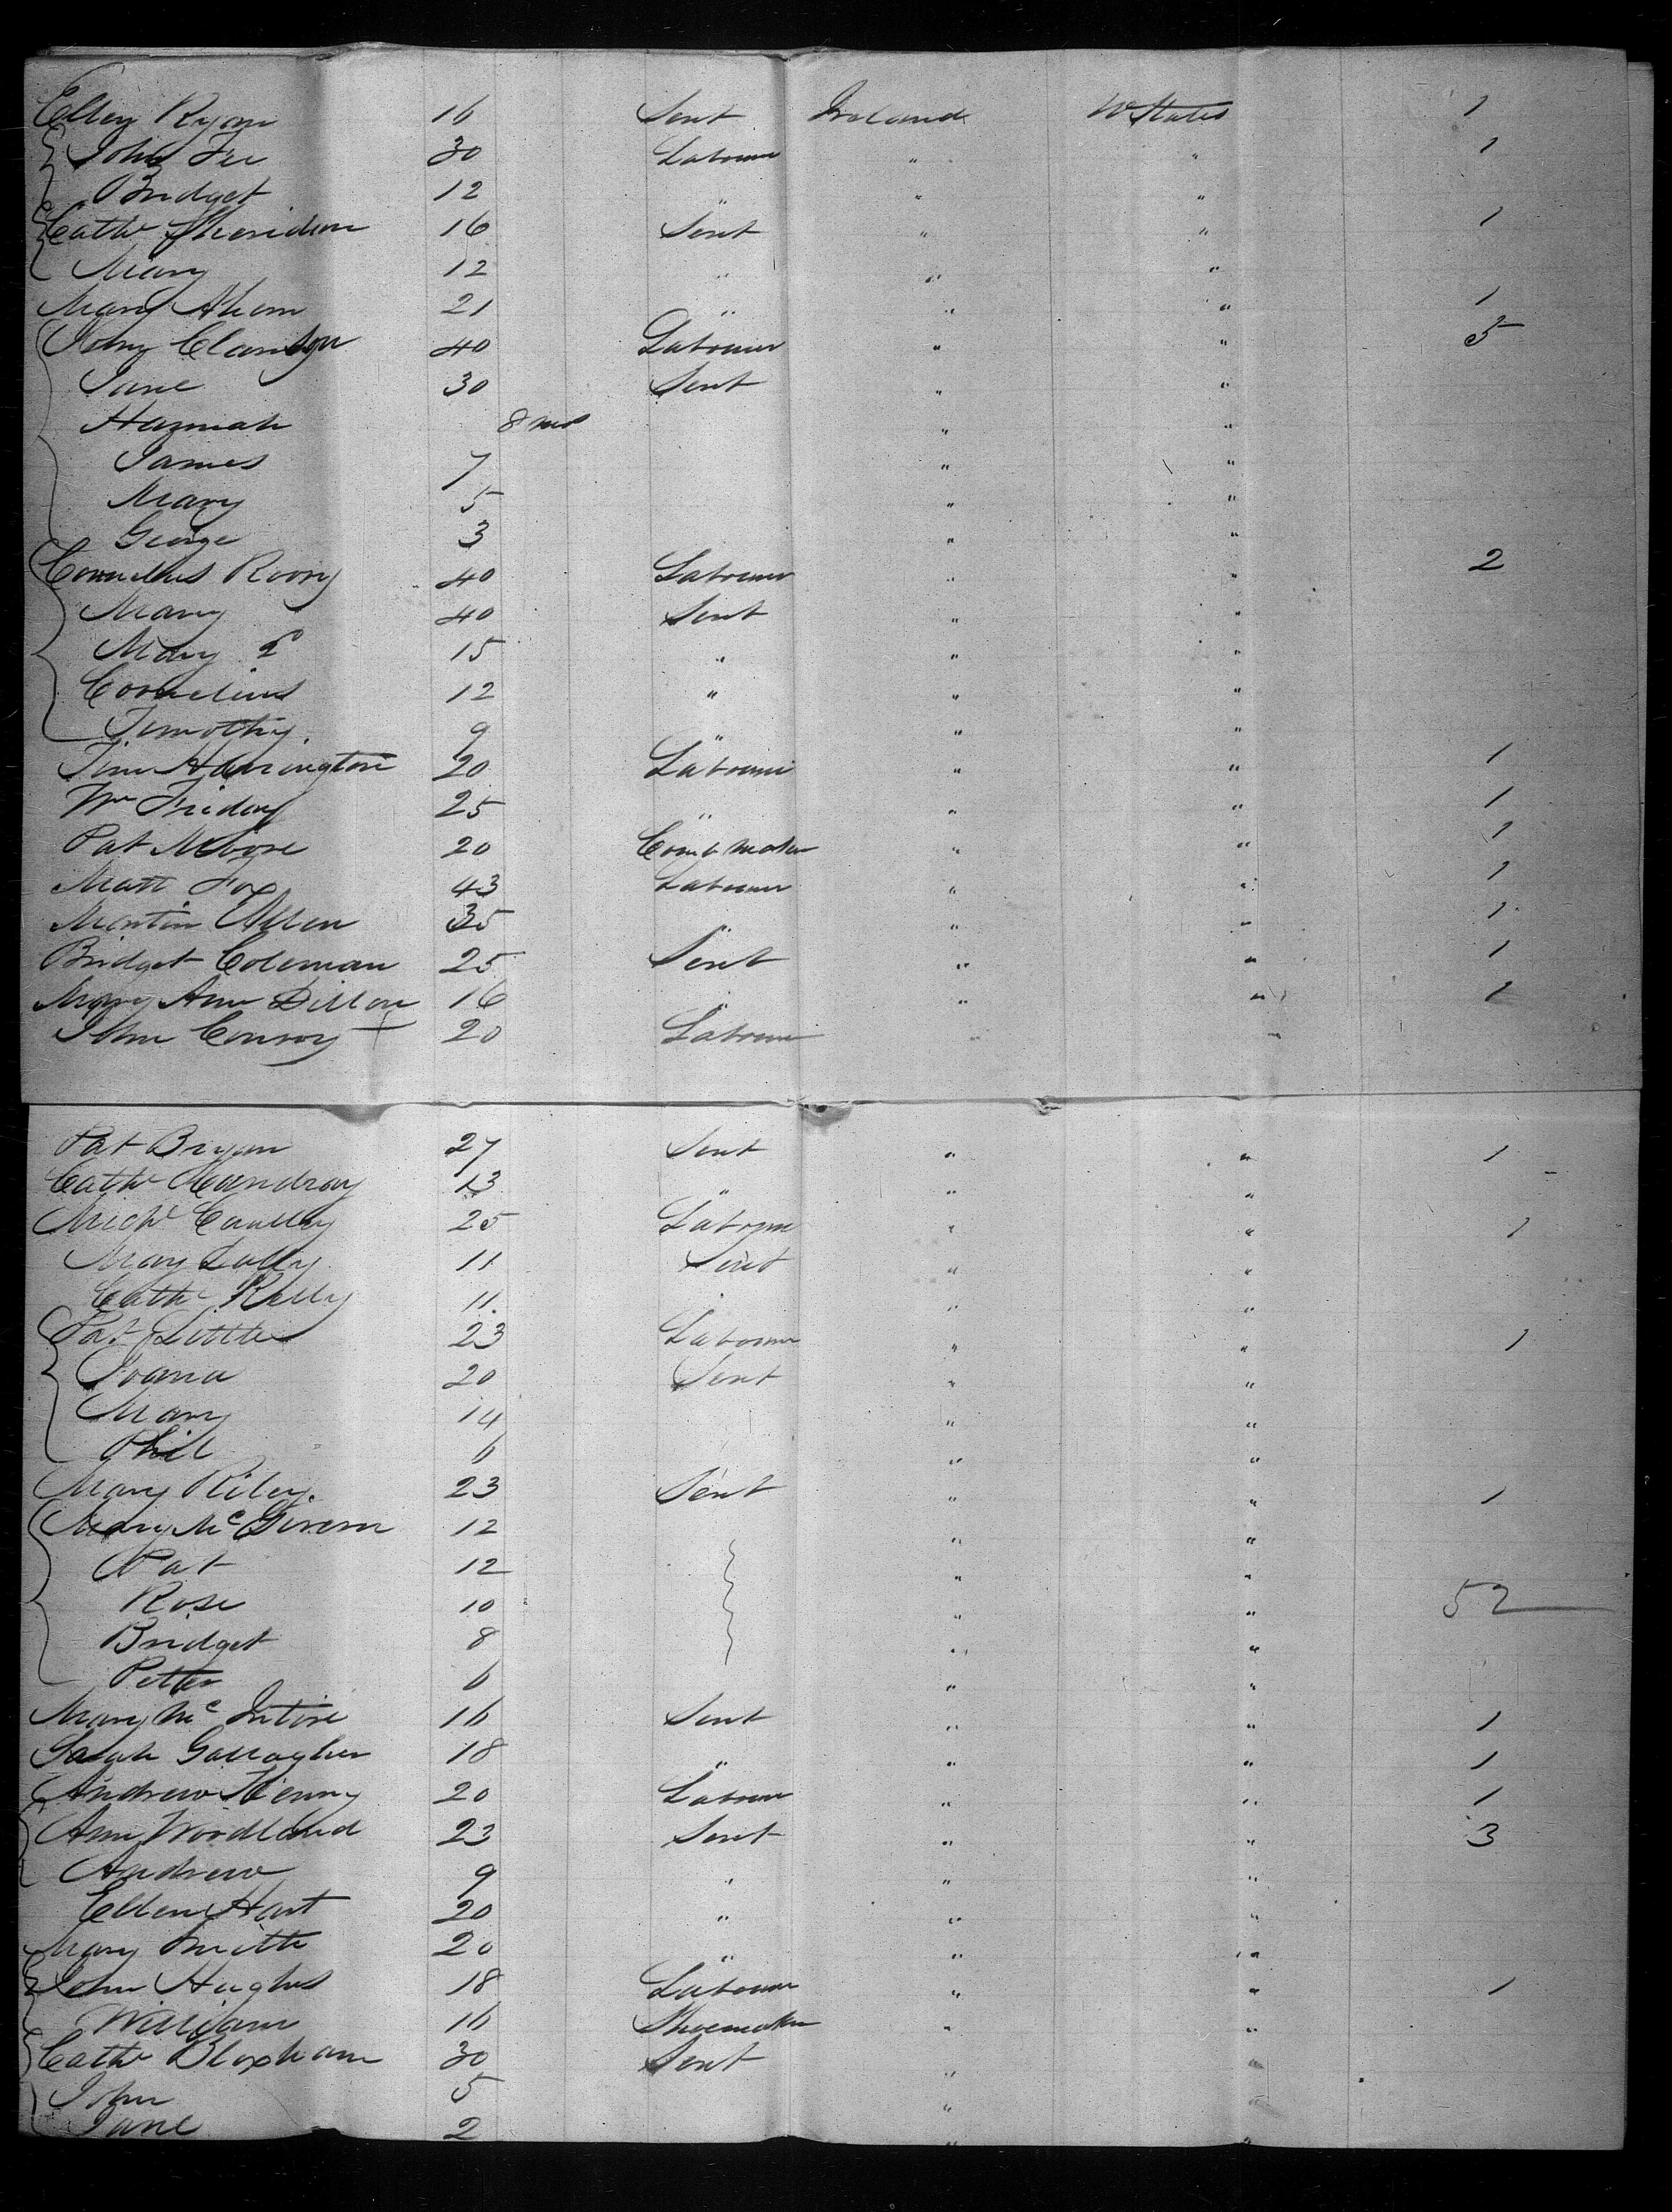 Ellen Ryan 16 Servt Ireland U States 1
John Fee 30 Labourer " " 1
Bridget 12 " " "
Cathe Sheridan 16 Servt " " 1
Mary 12 " " "
Mary Ahern 21 " " " 1
John 40 Labourer " " 5
Jane 30 Servt " "
Hannah 8 mos " "
James 7 " "
Mary 5 " "
George 3 " "
Cornelius Roony 40 Labourer " " 2
Mary 40 Servt " "
Mary 15 " " "
Cornelius 12 " " "
Timothy. 9 " " "
Tim Harrington 20 Labourer " " 1
Wm Friday 25 " " " 1
Pat Moore 20 Comb maker " " 1
Matt Fox 43 Labourer " " 1
Martin Allen 35 " " " 1
Bridget Coleman 25 Servt " " 1
Mary Ann Dillon 16 " " 1
John Conroy + 20 Labourer " "
Pat Bryan 27 Servt " " 1
Cathe 13 " " "
Michl 25 Labourer " " 1
Mary Lally 11 Servt " "
Cathe Kelly 11. " " "
Pat Little 23 Labourer " " 1
Joana 20 Servt " "
Mary 14 " "
Phil 6 " "
Mary Riley. 23 Servt " " 1
Mary McGivern 12 " "
Pat 12 " "
Rose 10 " " 52
Bridget 8 " "
Petter 6 " "
Mary McIntire 16 Servt " " 1
Sarah Gallagher 18 " " " 1
Andrew Kenny 20 Labourer " " 1
Ann Woodland 23 Servt " " 3
Andrew 9 " " "
Ellen Hart 20 " " "
Mary Smith 20 " " "
John Hughes 18 Labourer " " 1
William 16 Shoemaker " "
Cathe Bloxham 30 Servt " "
John 5 " "
Jane 2 " "